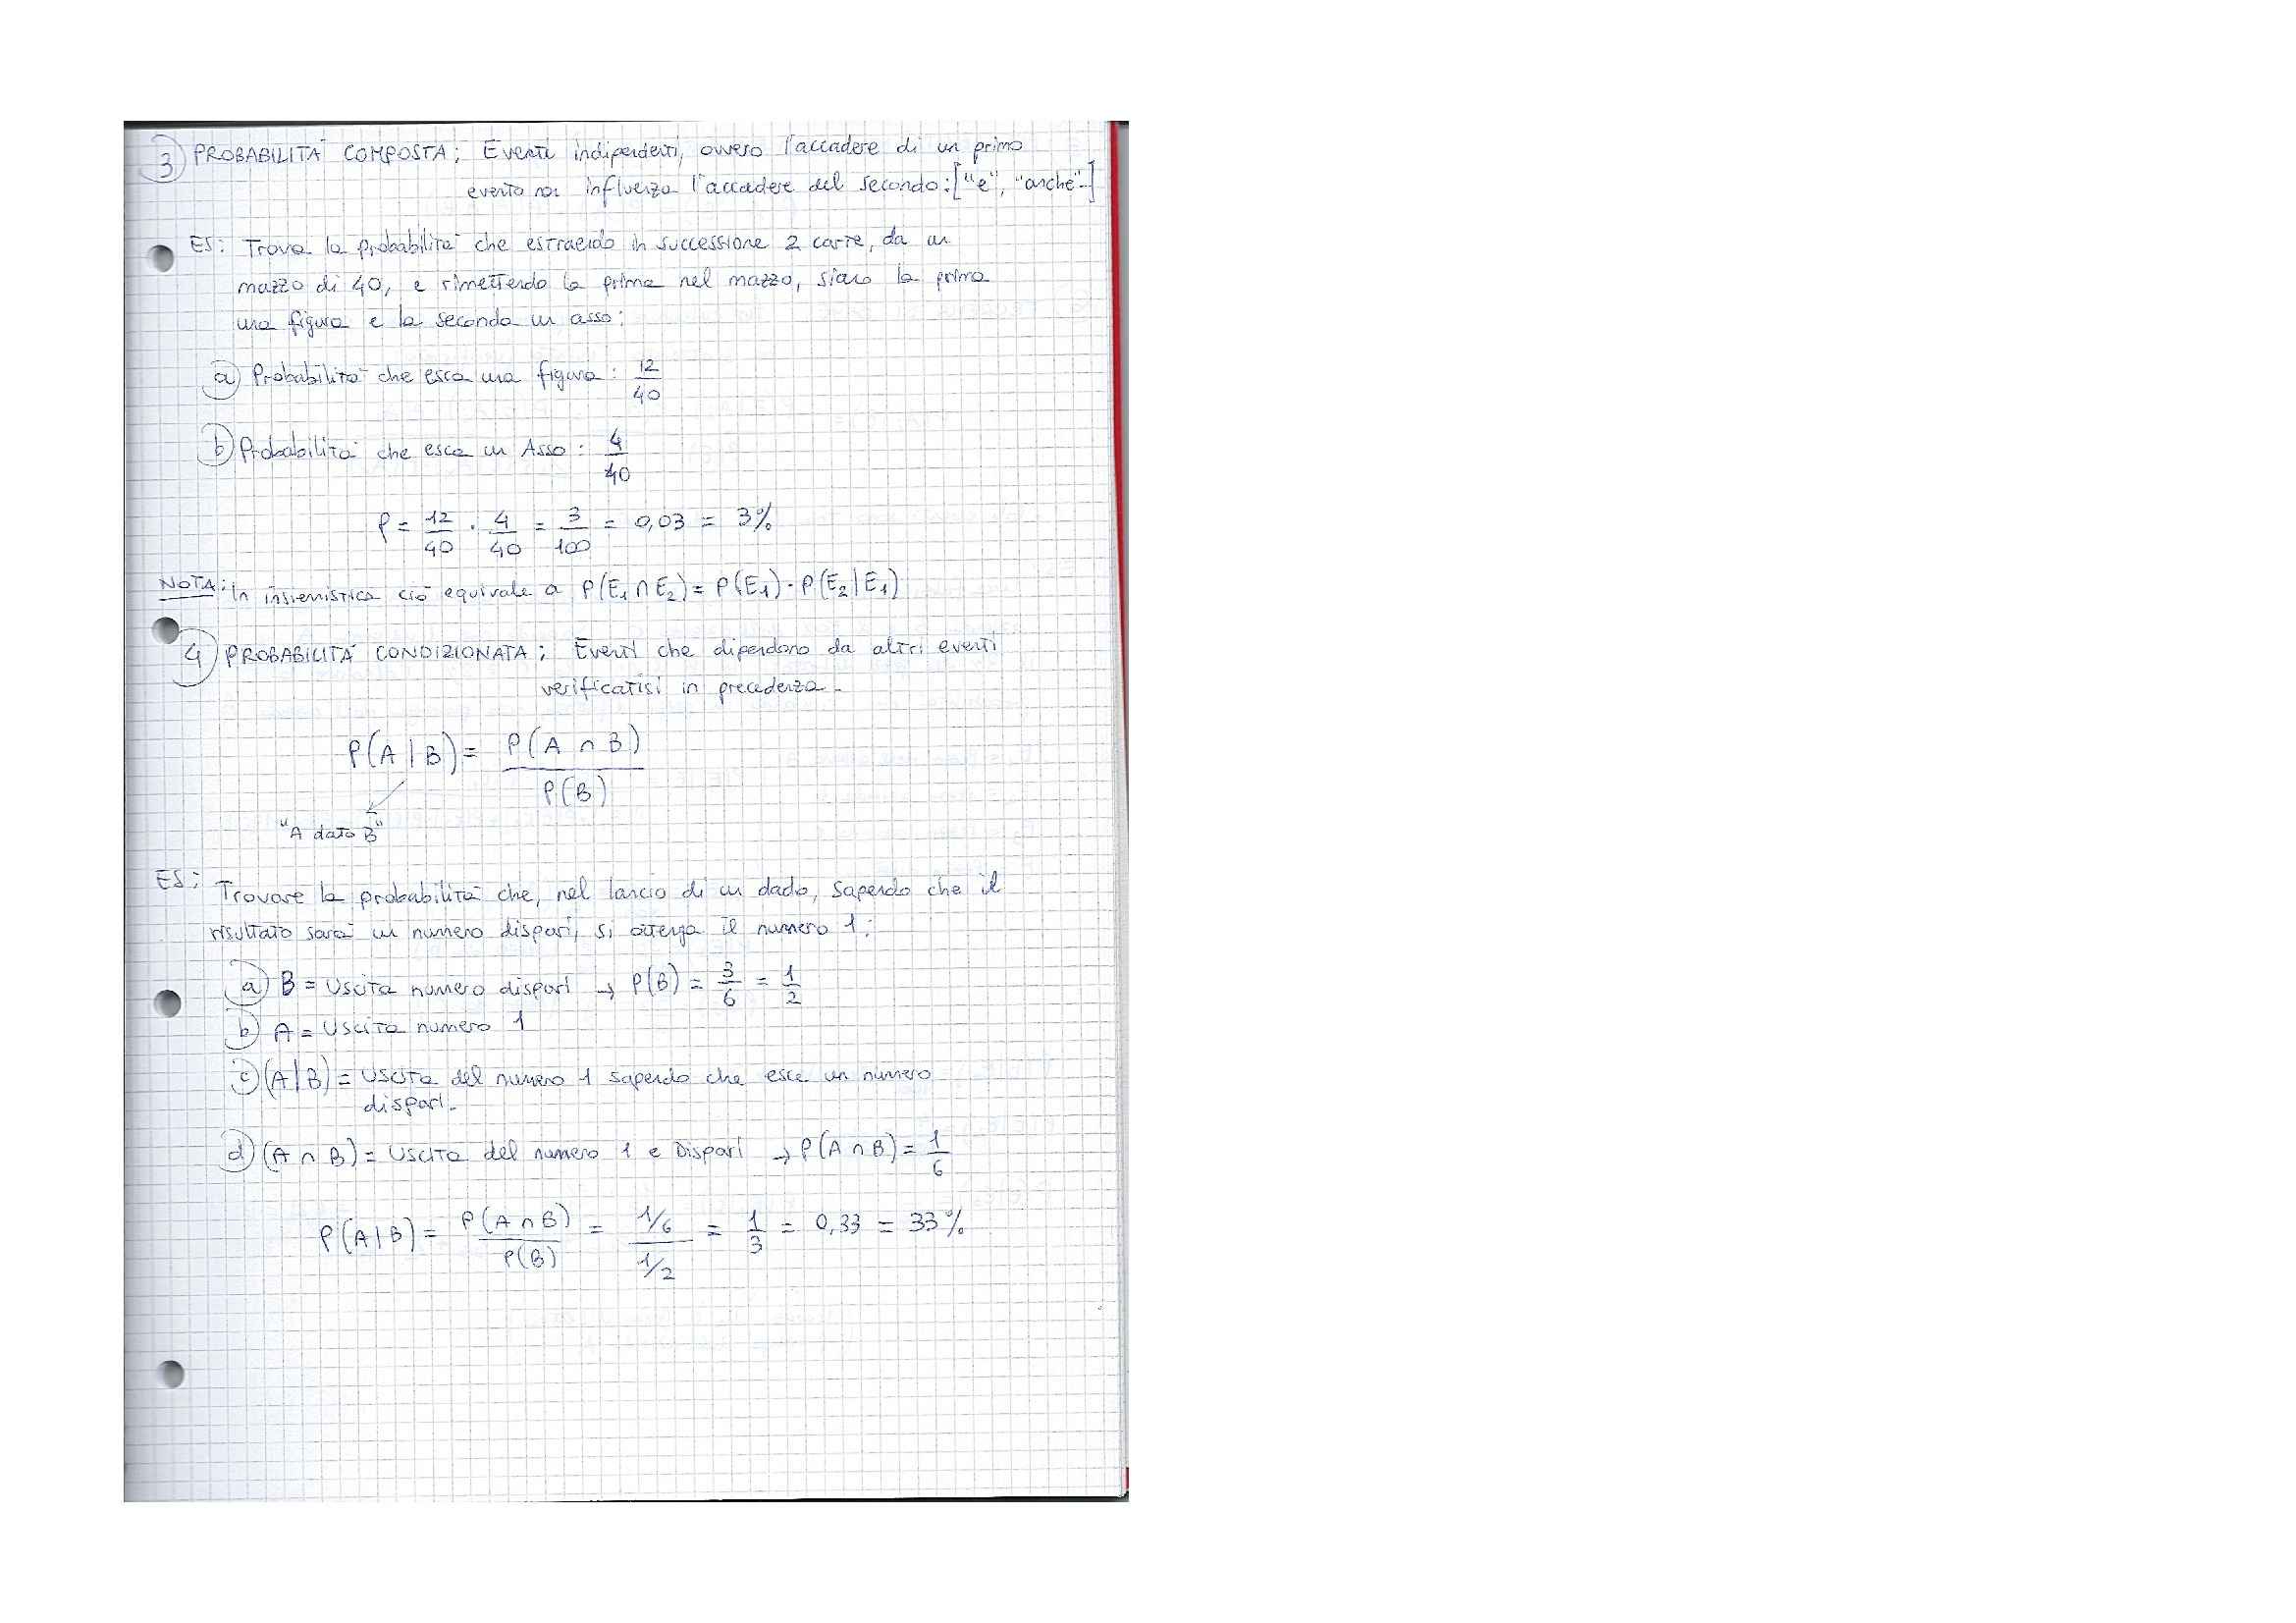 3) PROBABILITA' COMPOSTA: Eventi indipendenti, ovvero l'accadere di un primo
evento non influenza l'accadere del secondo: ["e", "anche"]
ES: Trova la probabilita' che estraendo in successione 2 carte, da un
mazzo di 40, e rimettendo la prima nel mazzo, siano la prima
una figura e la seconda un asso:
a) Probabilita' che esca una figura: 12/40
b) Probabilita' che esca un Asso: 4/40
P = 12/40 · 4/40 = 3/100 = 0,03 = 3%
NOTA: In insiemistica ciò equivale a P(E1 ∩ E2) = P(E1) · P(E2|E1)
4) PROBABILITA' CONDIZIONATA: Eventi che dipendono da altri eventi
verificatisi in precedenza.
P(A|B) = P(A ∩ B) / P(B)
"A dato B"
ES: Trovare la probabilita' che, nel lancio di un dado, sapendo che il
risultato sara' un numero dispari, si ottenga il numero 1:
a) B = Uscita numero dispari → P(B) = 3/6 = 1/2
b) A = Uscita numero 1
c) (A|B) = Uscita del numero 1 sapendo che esce un numero
dispari.
d) (A ∩ B) = Uscita del numero 1 e Dispari → P(A ∩ B) = 1/6
P(A|B) = P(A ∩ B)/P(B) = 1/6 / 1/2 = 1/3 = 0,33 = 33%